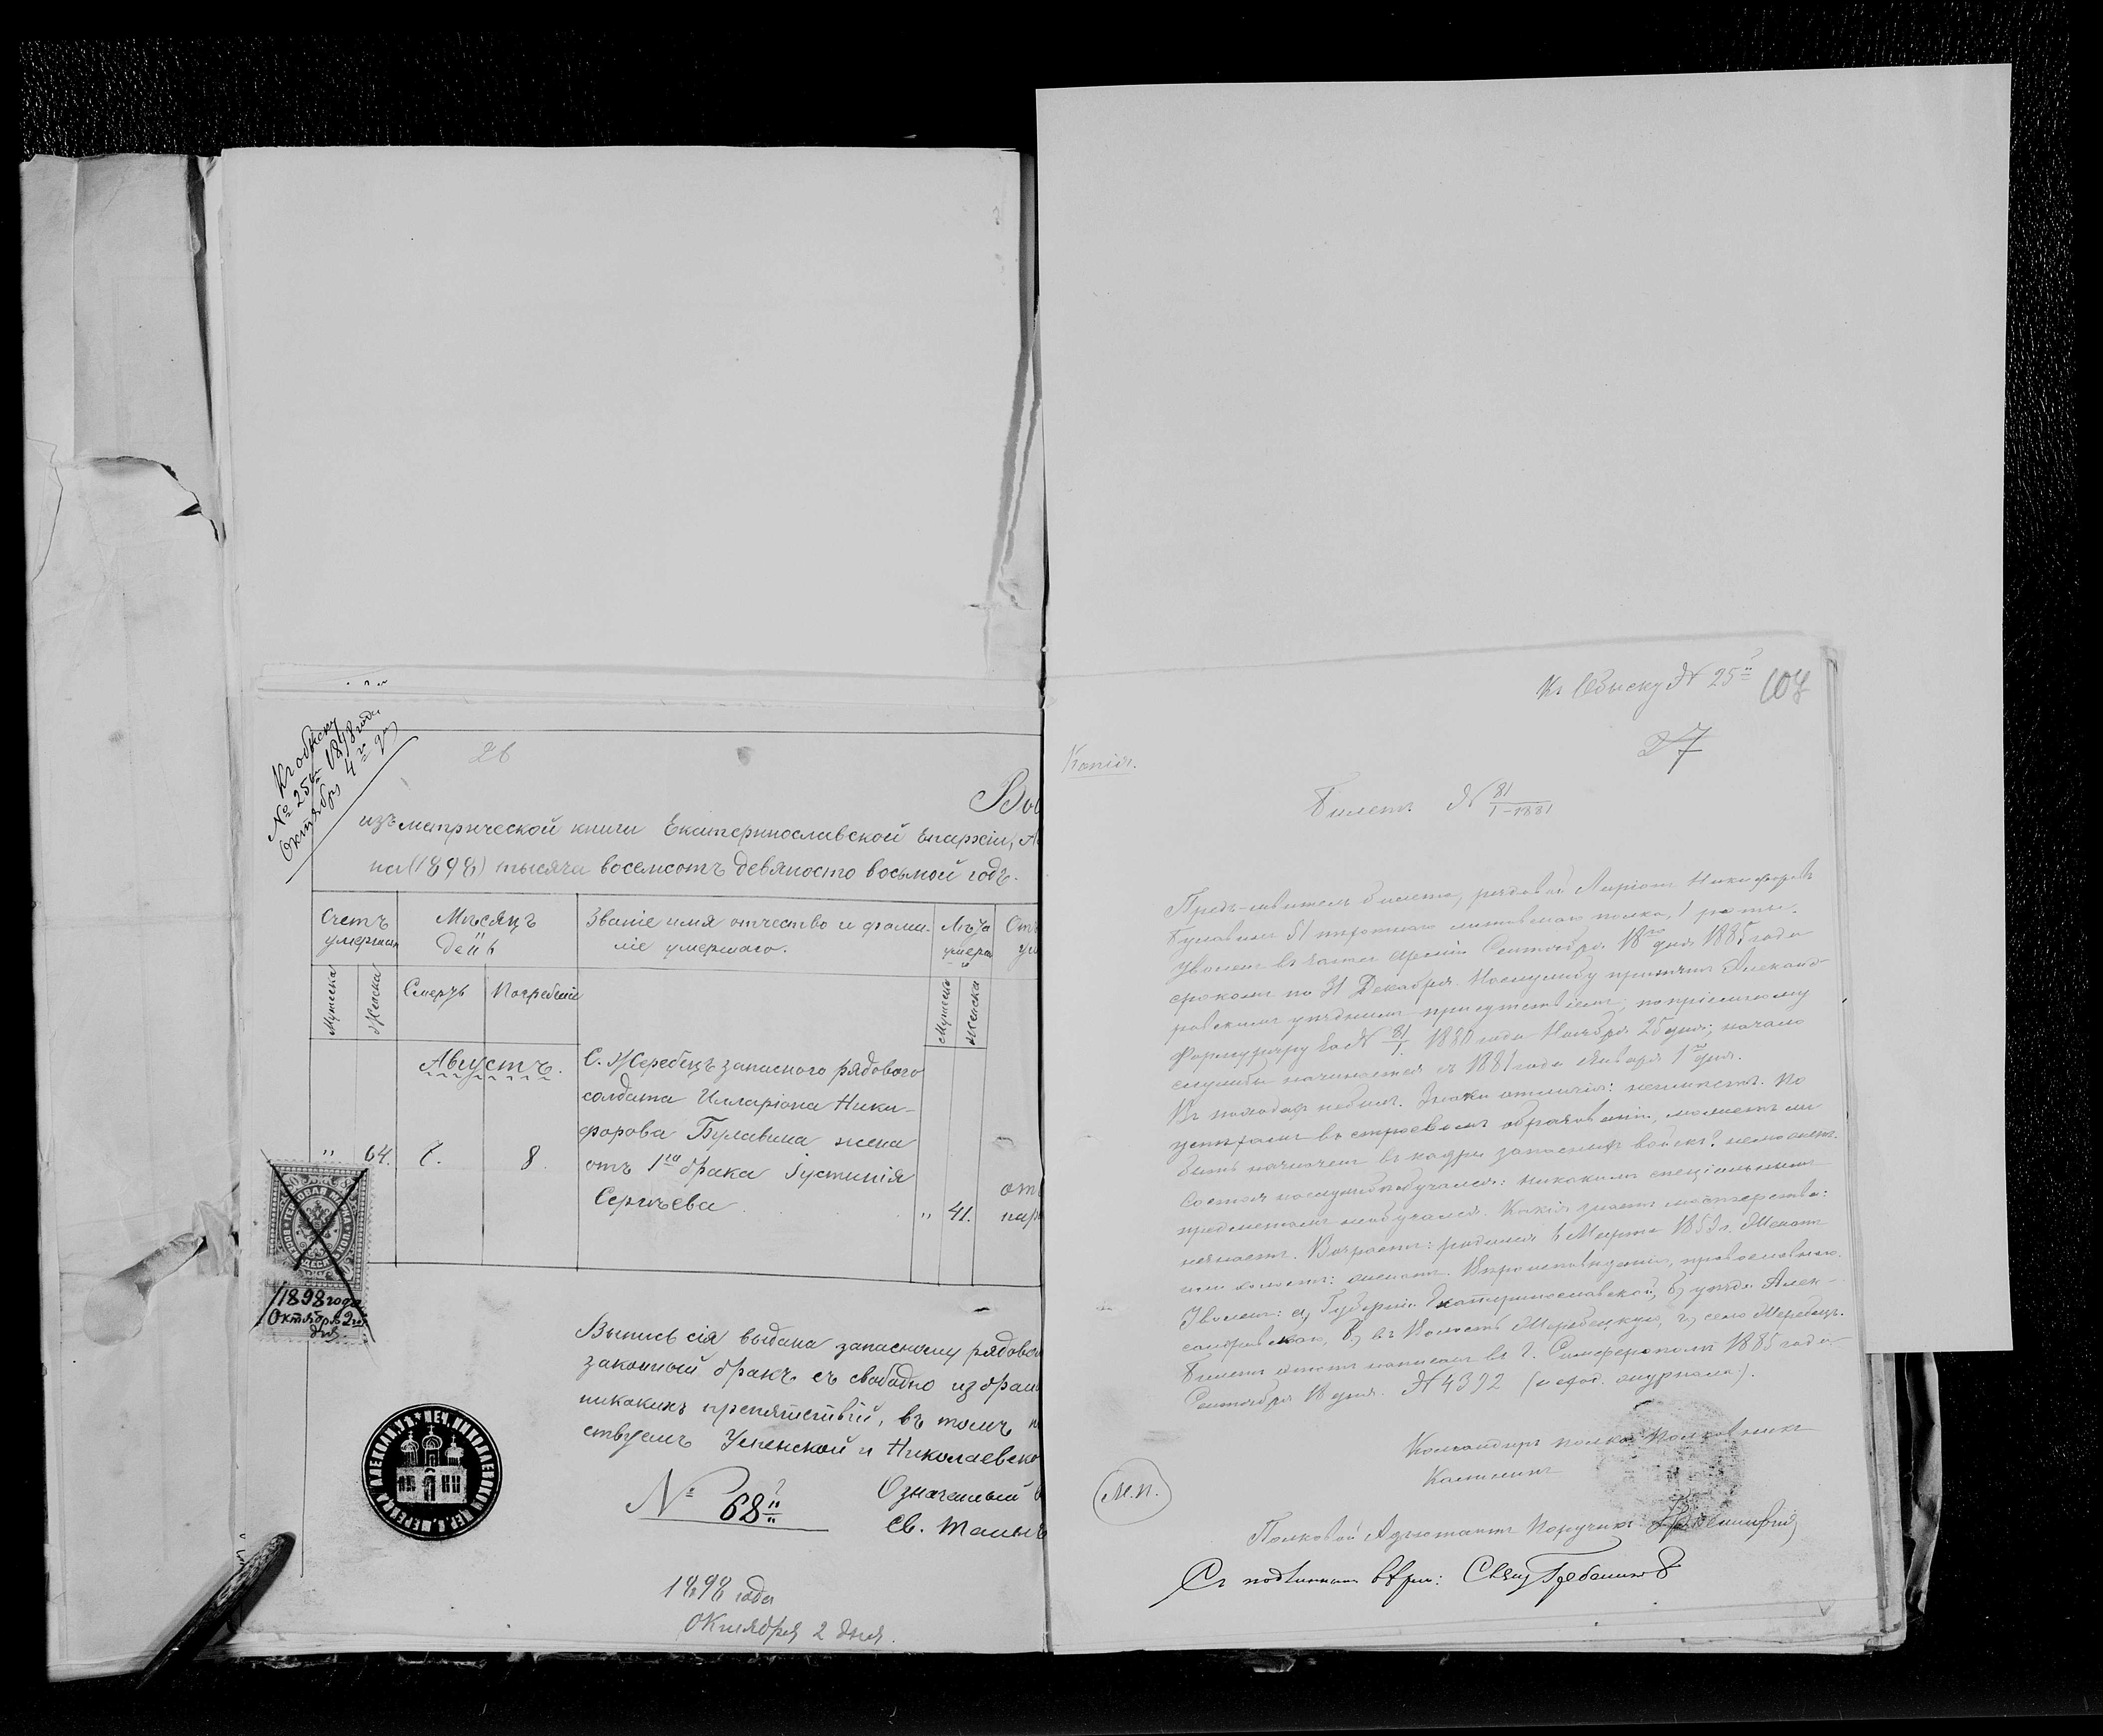 Къ обыску
№ 25й 1898 года
Октября 4го дня
26
Вы
изъ метрической книги Екатеринославской Епархіи, А
на (1898) тысяча восемсотъ девяносто восьмой годъ.
Счетъ умершихъ
Мѣсяцъ и день
Званіе имя отчество и фами-
ліе умершаго.
Лѣта умерш
Мужеска
Женска
Смерть
Погребенія
Мужеска
Женска
Августъ.
С. Жеребецъ запаснаго рядового
солдата Илларіона Ники-
форова Булавина жена
" 64. 6. 8.
отъ 1го брака Іустинія
Сергѣева
" 41.
ГЕРБОВАЯ МАРКА
1898 года
Октября 2го
дня
Выпись сія выдана запасному рядово
законный бракъ съ свободно избран
никакихъ препятствій, въ томъ
ствуемъ Успенской и Николаевско
№ 68й
Означенный
Св. Таинъ
1898 года
Октября 2 дня.
Къ Обыску № 25й
107
27
Копія.
Билетъ № 81/1-1881
Предъявитель билета, рядовой Ларіонъ Никифоровъ
Булавинъ 51 пѣхотнаго литовскаго полка, 1 роты.
Уволенъ въ запасъ арміи Сентября 18го дня 1885 года
срокомъ по 31 Декабря. На службу принятъ Александ-
ровскимъ уѣзднымъ присутствіемъ, по пріемному
формуляру за № 81/1. 1880 года Ноября 25 дня; начало
службы считается съ 1881 года Января 1го дня.
Въ походахъ не былъ. Знаки отличія: не имѣетъ. По
быть назначенъ въ кадры запасныхъ войскъ? не можетъ.
предметамъ не обучался. Какія знаетъ мастерства:
не знаетъ. Возрастъ: родился 6 Марта 1859 г. Женатъ
или холостъ: женатъ. Вѣроисповѣданія, православнаго.
Уволенъ: а) Губерніи Екатеринославской, б) уѣзда Алек-
сандровскаго, в) въ Волость Жеребецкую, г) село Жеребецъ.
Билетъ этотъ написанъ въ г. Симферополѣ 1885 года
Сентября 18 дня. № 4392 (исход. журнала).
Командиръ полка Полковникъ
Калининъ
М.П.
Полковой Адъютантъ Поручикъ
Съ подлиннымъ вѣрно: Свящ Гребенников